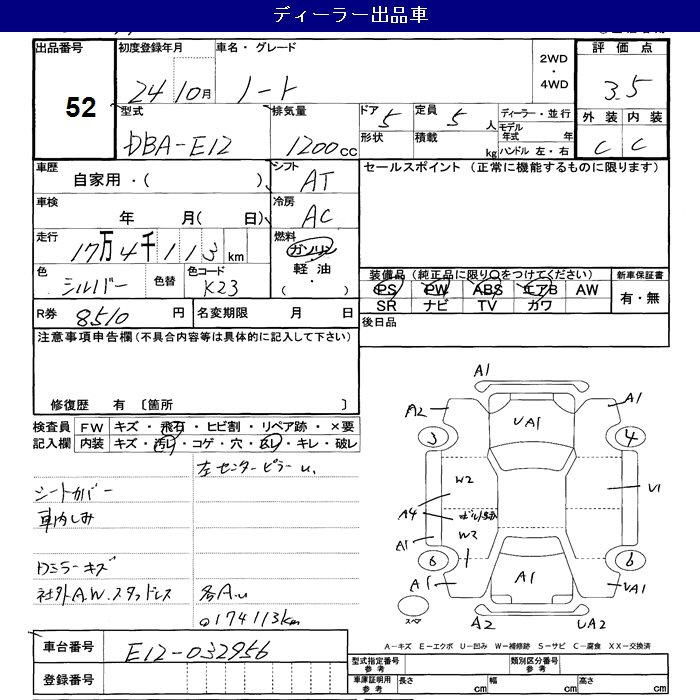 ディーラー出品車
出品番号 初度登録年月 車名・グレード 2WD・4WD 評価点
52 24 10月 ノート 3.5
型式 排気量 ドア 5 定員 5人 ディーラー・並行 外装 内装
DBA-E12 1200cc 形状 積載 kg モデル年式 年 C C
ハンドル 左・右
車歴 自家用・( ) シフト AT セールスポイント (正常に機能するものに限ります)
車検 年 月( 日) 冷房 AC
走行 17万4千113km 燃料 ガソリン 軽油・( )
色 シルバー 色替 色コード K23 装備品 (純正品に限り○をつけてください) 新車保証書
PS PW ABS エアB AW 有・無
SR ナビ TV カワ
R券 8510円 名変期限 月 日 後日品
注意事項申告欄(不具合内容等は具体的に記入して下さい)
修復歴 有 〔箇所 〕
検査員 FW キズ・飛石・ヒビ割・リペア跡・×要
記入欄 内装 キズ・汚れ・コゲ・穴・スレ・キレ・破レ
左センターピラーu.
シートカバー
車内しみ
Dミラーキズ
社外A.W.スタッドレス 各A.u
◎174113km
A1
A2 A1
UA1
3 4
W2
A4 U1
W2
A1
6 6
A1 A1 UA1
スペ A2 UA2
A―キズ E―エクボ U―凹み W―補修跡 S―サビ C―腐食 XX―交換済
車台番号 E12-032956
型式指定番号 参考 類別区分番号 参考
登録番号
車庫証明用 参考 長さ cm 幅 cm 高さ cm